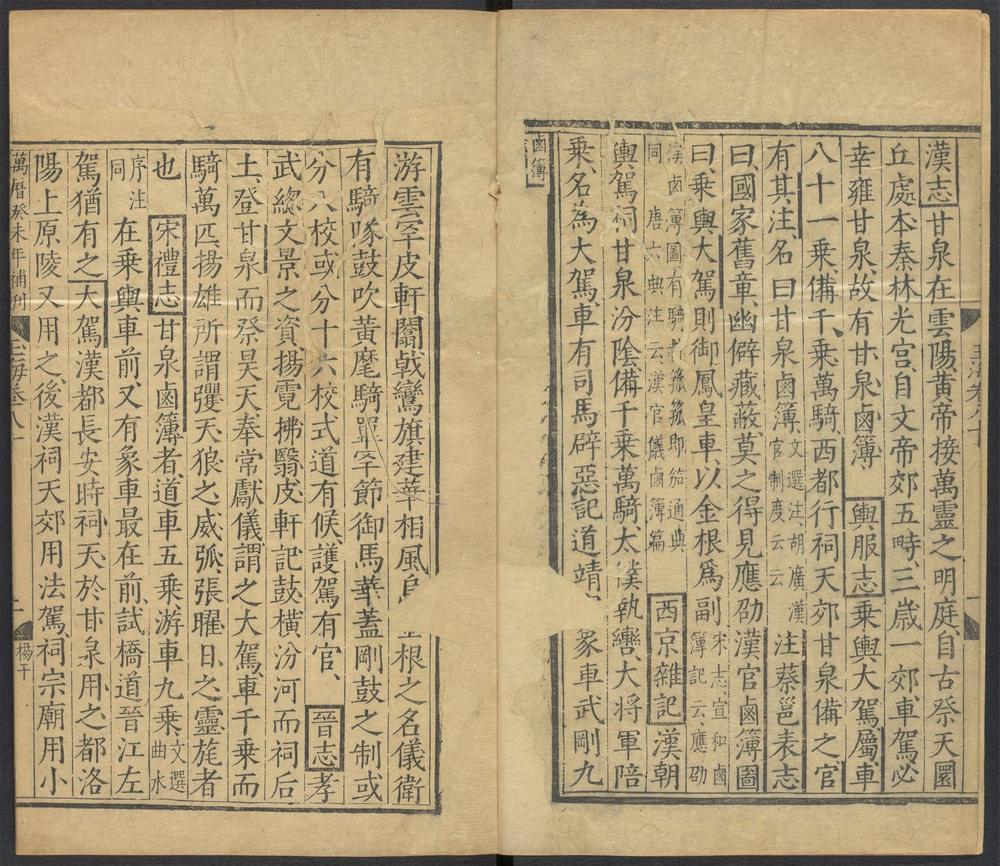 漢志甘泉在雲陽黃帝接萬靈之明庭自古祭天圜
丘處本秦林光宮自文帝郊五畤三歲一郊車駕必
幸雍甘泉故有甘泉鹵簿輿服志乘輿大駕屬車
八十一乘備千乘萬騎西都行祠天郊甘泉備之官
有其注名曰甘泉鹵簿文選注胡廣漢官制度云云注蔡邕表志
曰國家舊章幽僻藏蔽莫之得見應劭漢官鹵簿圖
曰乘輿大駕則御鳳皇車以金根為副宋志宣和鹵簿記云應劭
漢鹵簿圖有騎執菰菰即笳通典同唐六典注云漢官儀鹵簿篇西京雜記漢朝
輿駕祠甘泉汾陰備千乘萬騎太僕執轡大將軍陪
乘名為大駕車有司馬辟惡記道靖象車武剛九
鹵簿
游雲罕皮軒闟戟鸞旗建華相風根之名儀衛
有騎啄鼓吹黃麾騎罼罕節御馬華蓋剛鼓之制或
分八校或分十六校式道有候護駕有官晉志孝
武總文景之資揚霓拂翳皮軒記鼓橫汾河而祠后
土登甘泉而祭昊天奉常獻儀謂之大駕車千乘而
騎萬匹揚雄所謂彏天狼之威弧張曜日之靈旄者
也宋禮志甘泉鹵簿者道車五乘游車九乘文選曲水
序注同在乘輿車前又有象車最在前試橋道晉江左
駕猶有之大駕漢都長安時祠天於甘泉用之都洛
陽上原陵又用之後漢祠天郊用法駕祠宗廟用小
萬曆癸未年補刊
玉海卷八十
楊干